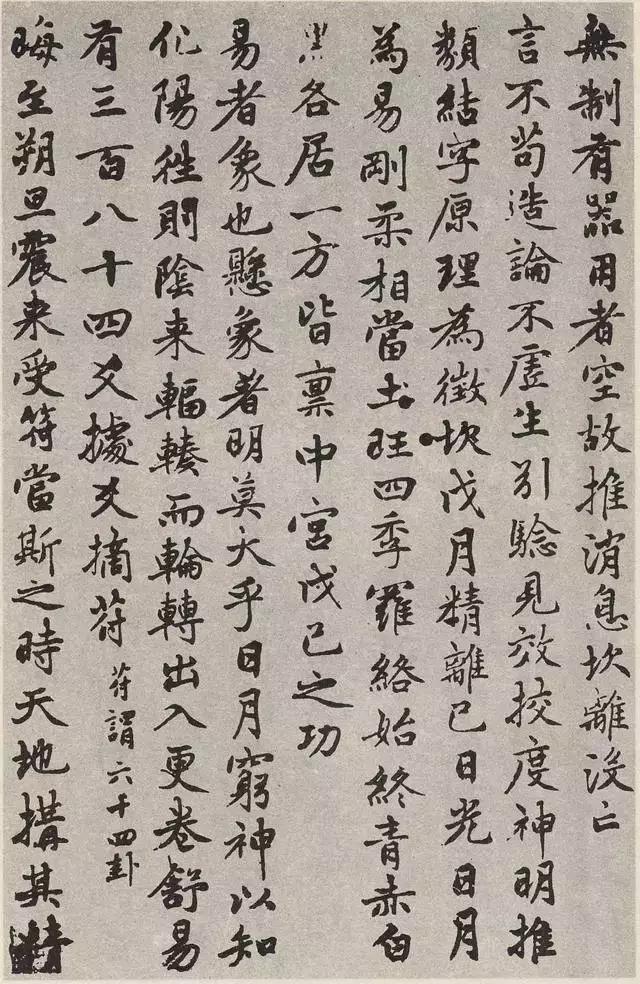 無制有器用者空故推消息坎離沒亡
言不苟造論不虛生引驗見效挍度神明推
類結字原理為徵坎戊月精離己日光日月
為易剛柔相當土旺四季羅絡始終青赤白
黑各居一方皆稟中宮戊己之功
易者象也懸象著明莫大乎日月窮神以知
化陽往則陰來輻輳而輪轉出入更卷舒易
有三百八十四爻據爻摘符符謂六十四卦
晦至朔旦震来受符當斯之時天地搆其精